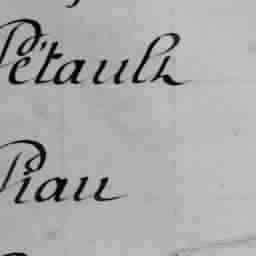 Pétault
Piau